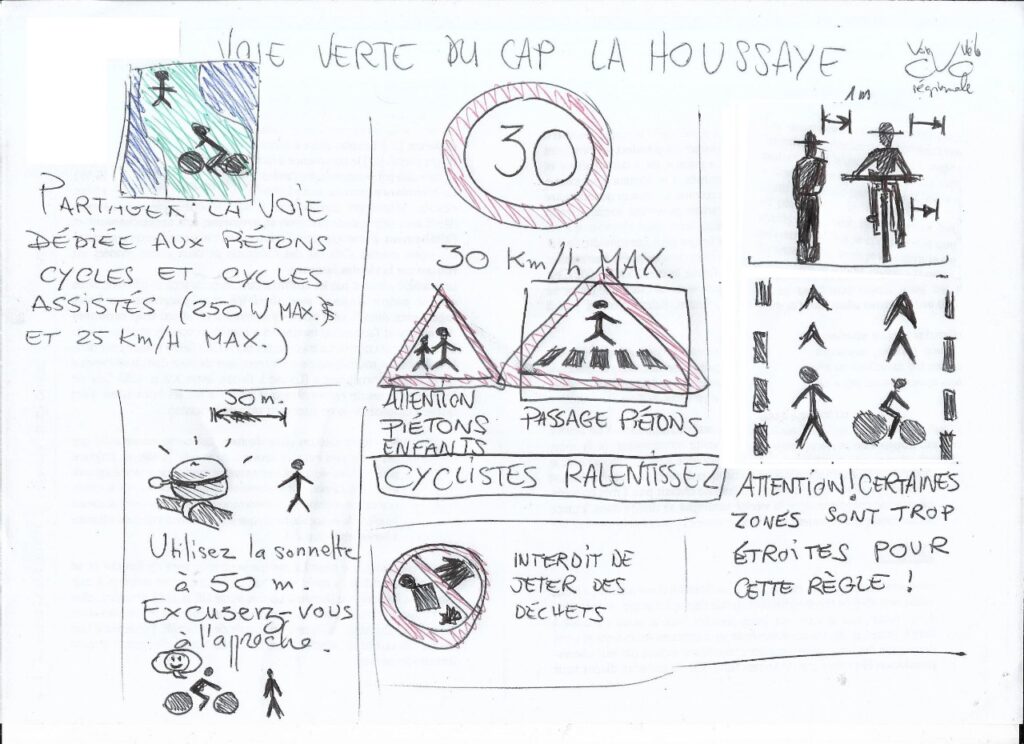 VOIE VERTE DU CAP LA HOUSSAYE
Voie Vélo
régionale
PARTAGER LA VOIE
DÉDIÉE AUX PIÉTONS
CYCLES ET CYCLES
ASSISTÉS (250 W MAX.
ET 25 KM/H MAX.)
50 m.
Utilisez la sonnette
à 50 m.
Excusez-vous
à l'approche.
30
30 Km/h MAX.
ATTENTION
PIÉTONS
ENFANTS
PASSAGE PIÉTONS
CYCLISTES RALENTISSEZ
INTERDIT DE
JETER DES
DÉCHETS
1m
ATTENTION! CERTAINES
ZONES SONT TROP
ÉTROITES POUR
CETTE RÈGLE !